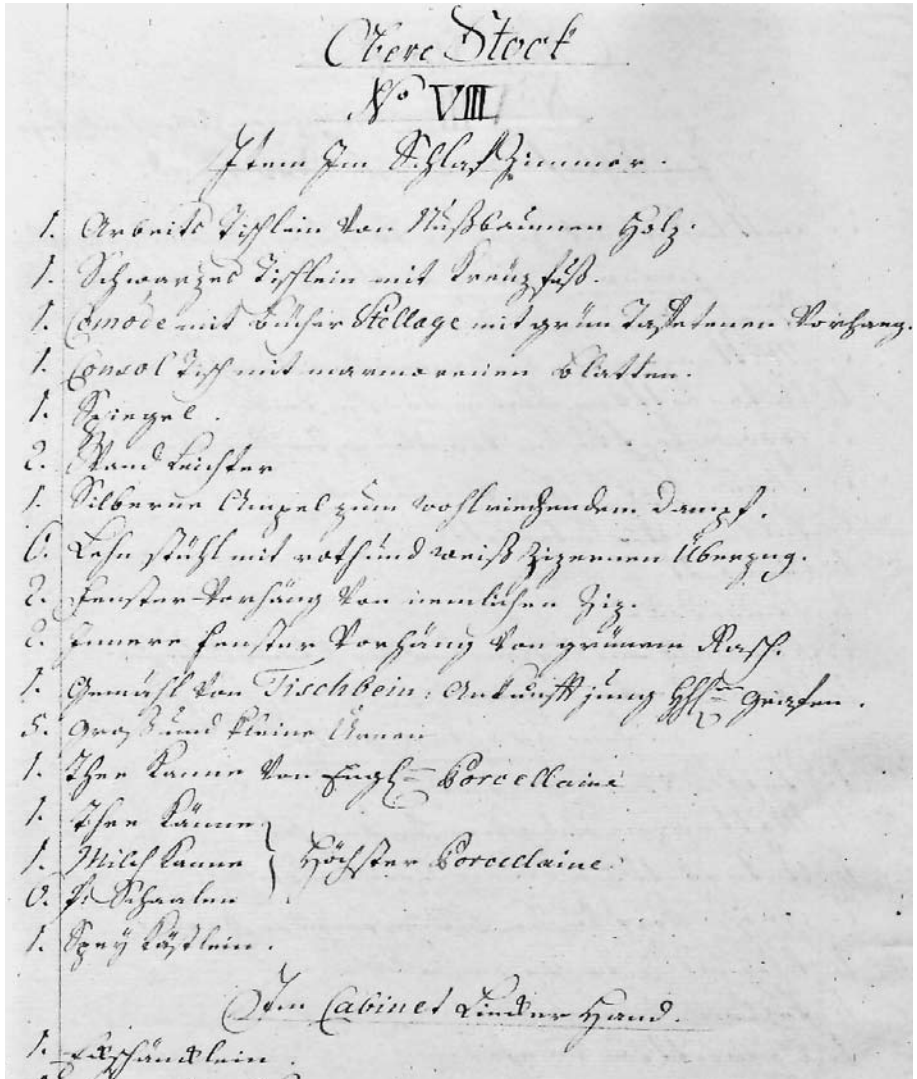 Obere Stock
No VIII
Item Im Schlaf Zimmer.
1. Arbeits Tischlein von Nußbaumen Holz.
1. Schwarzes Tischlein mit Kreuzfuß.
1. Comode mit bücher Stellage mit grün Taffetenen Vorhang.
1. Consol Tisch mit marmorenen Blatten.
1. Spiegel.
2. Wand Leichter
1. Silberne Ampel zum wohlriechendem Dampf.
6. Lehn stühl mit roth und weiß Zizernen Überzug.
2. Fenster-Vorhäng von nemlichen Ziz.
2. Innere Fenster Vorhäng von grünem Rasch.
1. Gemähl von Tischbein, Ankunfft jung Grafen.
5. Groß und kleine Urnen
1. Thee Kanne von Engl. Porcellaine
1. Thee Kanne
1. Milch Kanne Höchster Porcellaine.
6. Schaalen
1. Spey Kästlein.
Im Cabinet Lincker Hand.
1. Eckschäncklein.